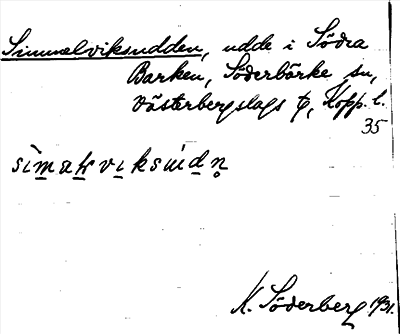 Simmelviksudden, udde i Södra
Barken, Söderbärke sn,
Västerbergslags tg, Kopp. l.
35
K. Söderberg 1931.